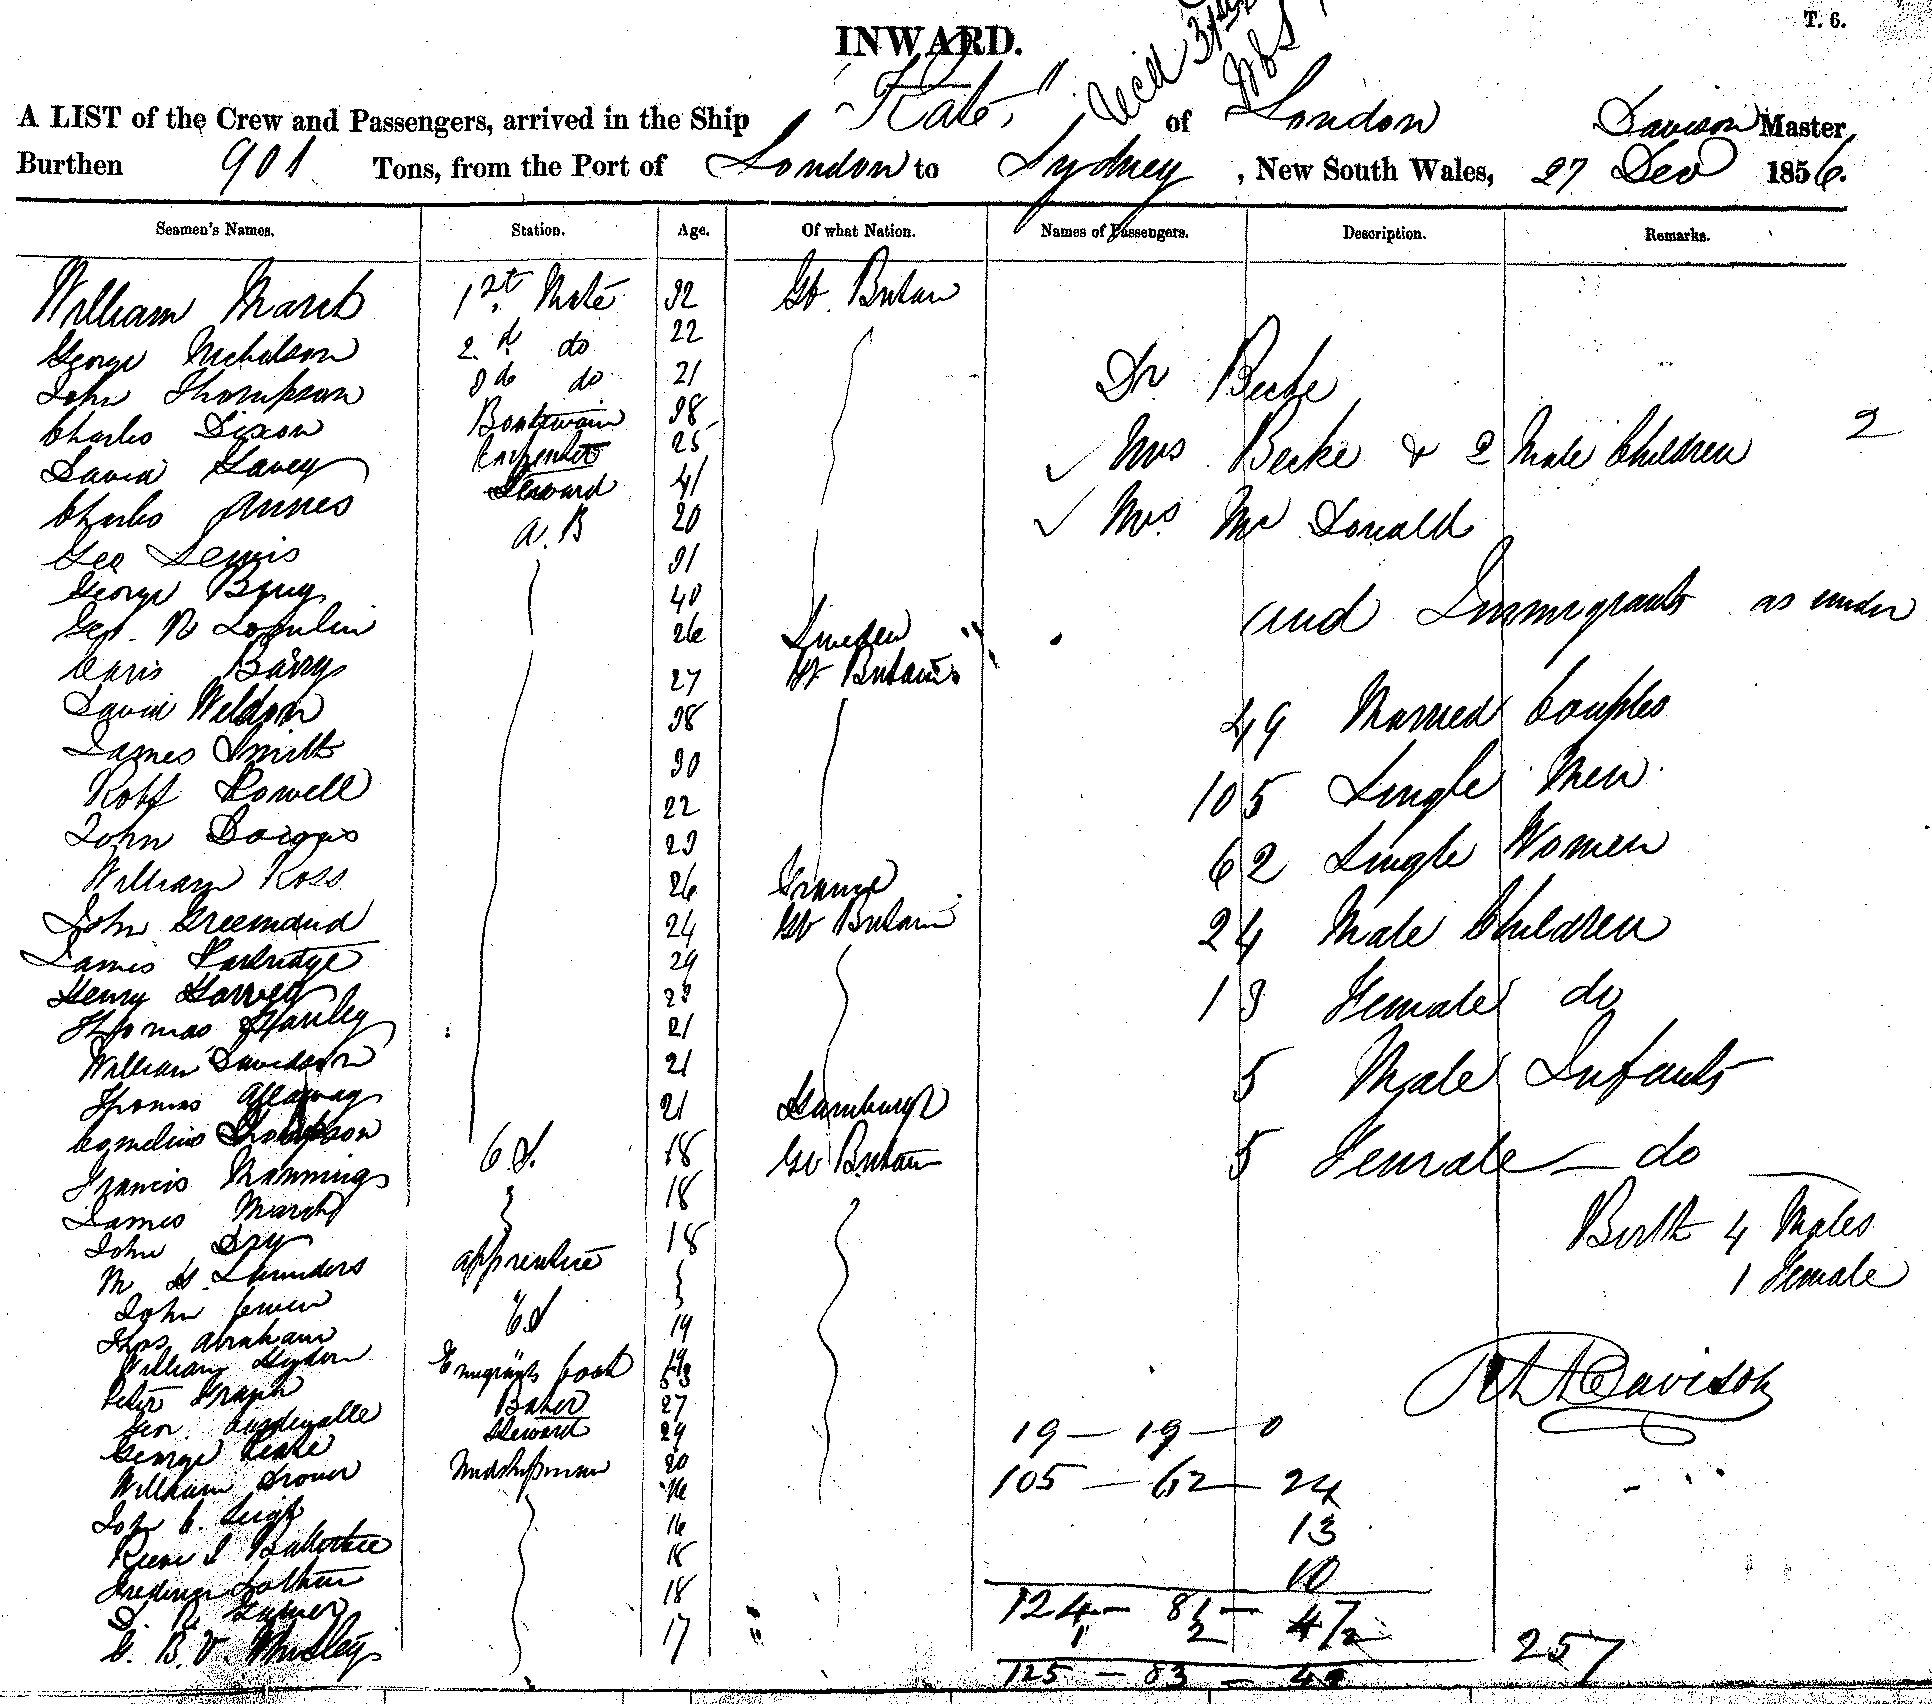 T. 6.
INWARD.
A LIST of the Crew and Passengers, arrived in the Ship "Kate," of London Davison Master
Burthen 901 Tons, from the Port of London to Sydney, New South Wales, 27 Dec 1856.
Seamen's Names. Station. Age. Of what Nation. Names of Passengers. Description. Remarks.
William Marsh 1st Mate 32 Gt. Britain
George Nicholson 2d. do 22
John Thompson 3d do 21
Charles Dixon Boatswain 38
David Havey Carpenter 25
Charles Annes Steward 41
Geo Lewis A. B 20
George Byng 31
Geo. R 40
Barry 26 Sweden
David Weldon 27 Gt Britain
James Smith 38
Robt Powell 30
John 22
William Ross 23
John 26 France
James Partridge 24 Gt Britain
Henry Harvey 29
Thomas Hanley 23
William Davidson 21
Thomas 21
Cornelius Thompson 21 Hamburgh
Francis Manning O. S. 18 Gt Britain
James March 18
John Dry 18
M. H. Saunders apprentice
John
Thos Abraham O S 19
William 19
Peter Emigrants Cook
Geo. Baker 27
George Steward 29
William Midshipman 20
John C. Leigh 16
16
Frederick 18
18
G. B. V. 17
Dr Becke
Mrs Becke & 2 Male Children 2
Mrs Mc Donald
and Immigrants as under
49 Married Couples
105 Single Men
62 Single Women
24 Male Children
13 Female do
5 Male Infants
5 Female - do
Birth 4 Males
1 Female
Davison
19 - 19 - 0
105 - 62 - 24
13
10
124 - 81 - 47
1 2 2
125 - 83 - 49
257